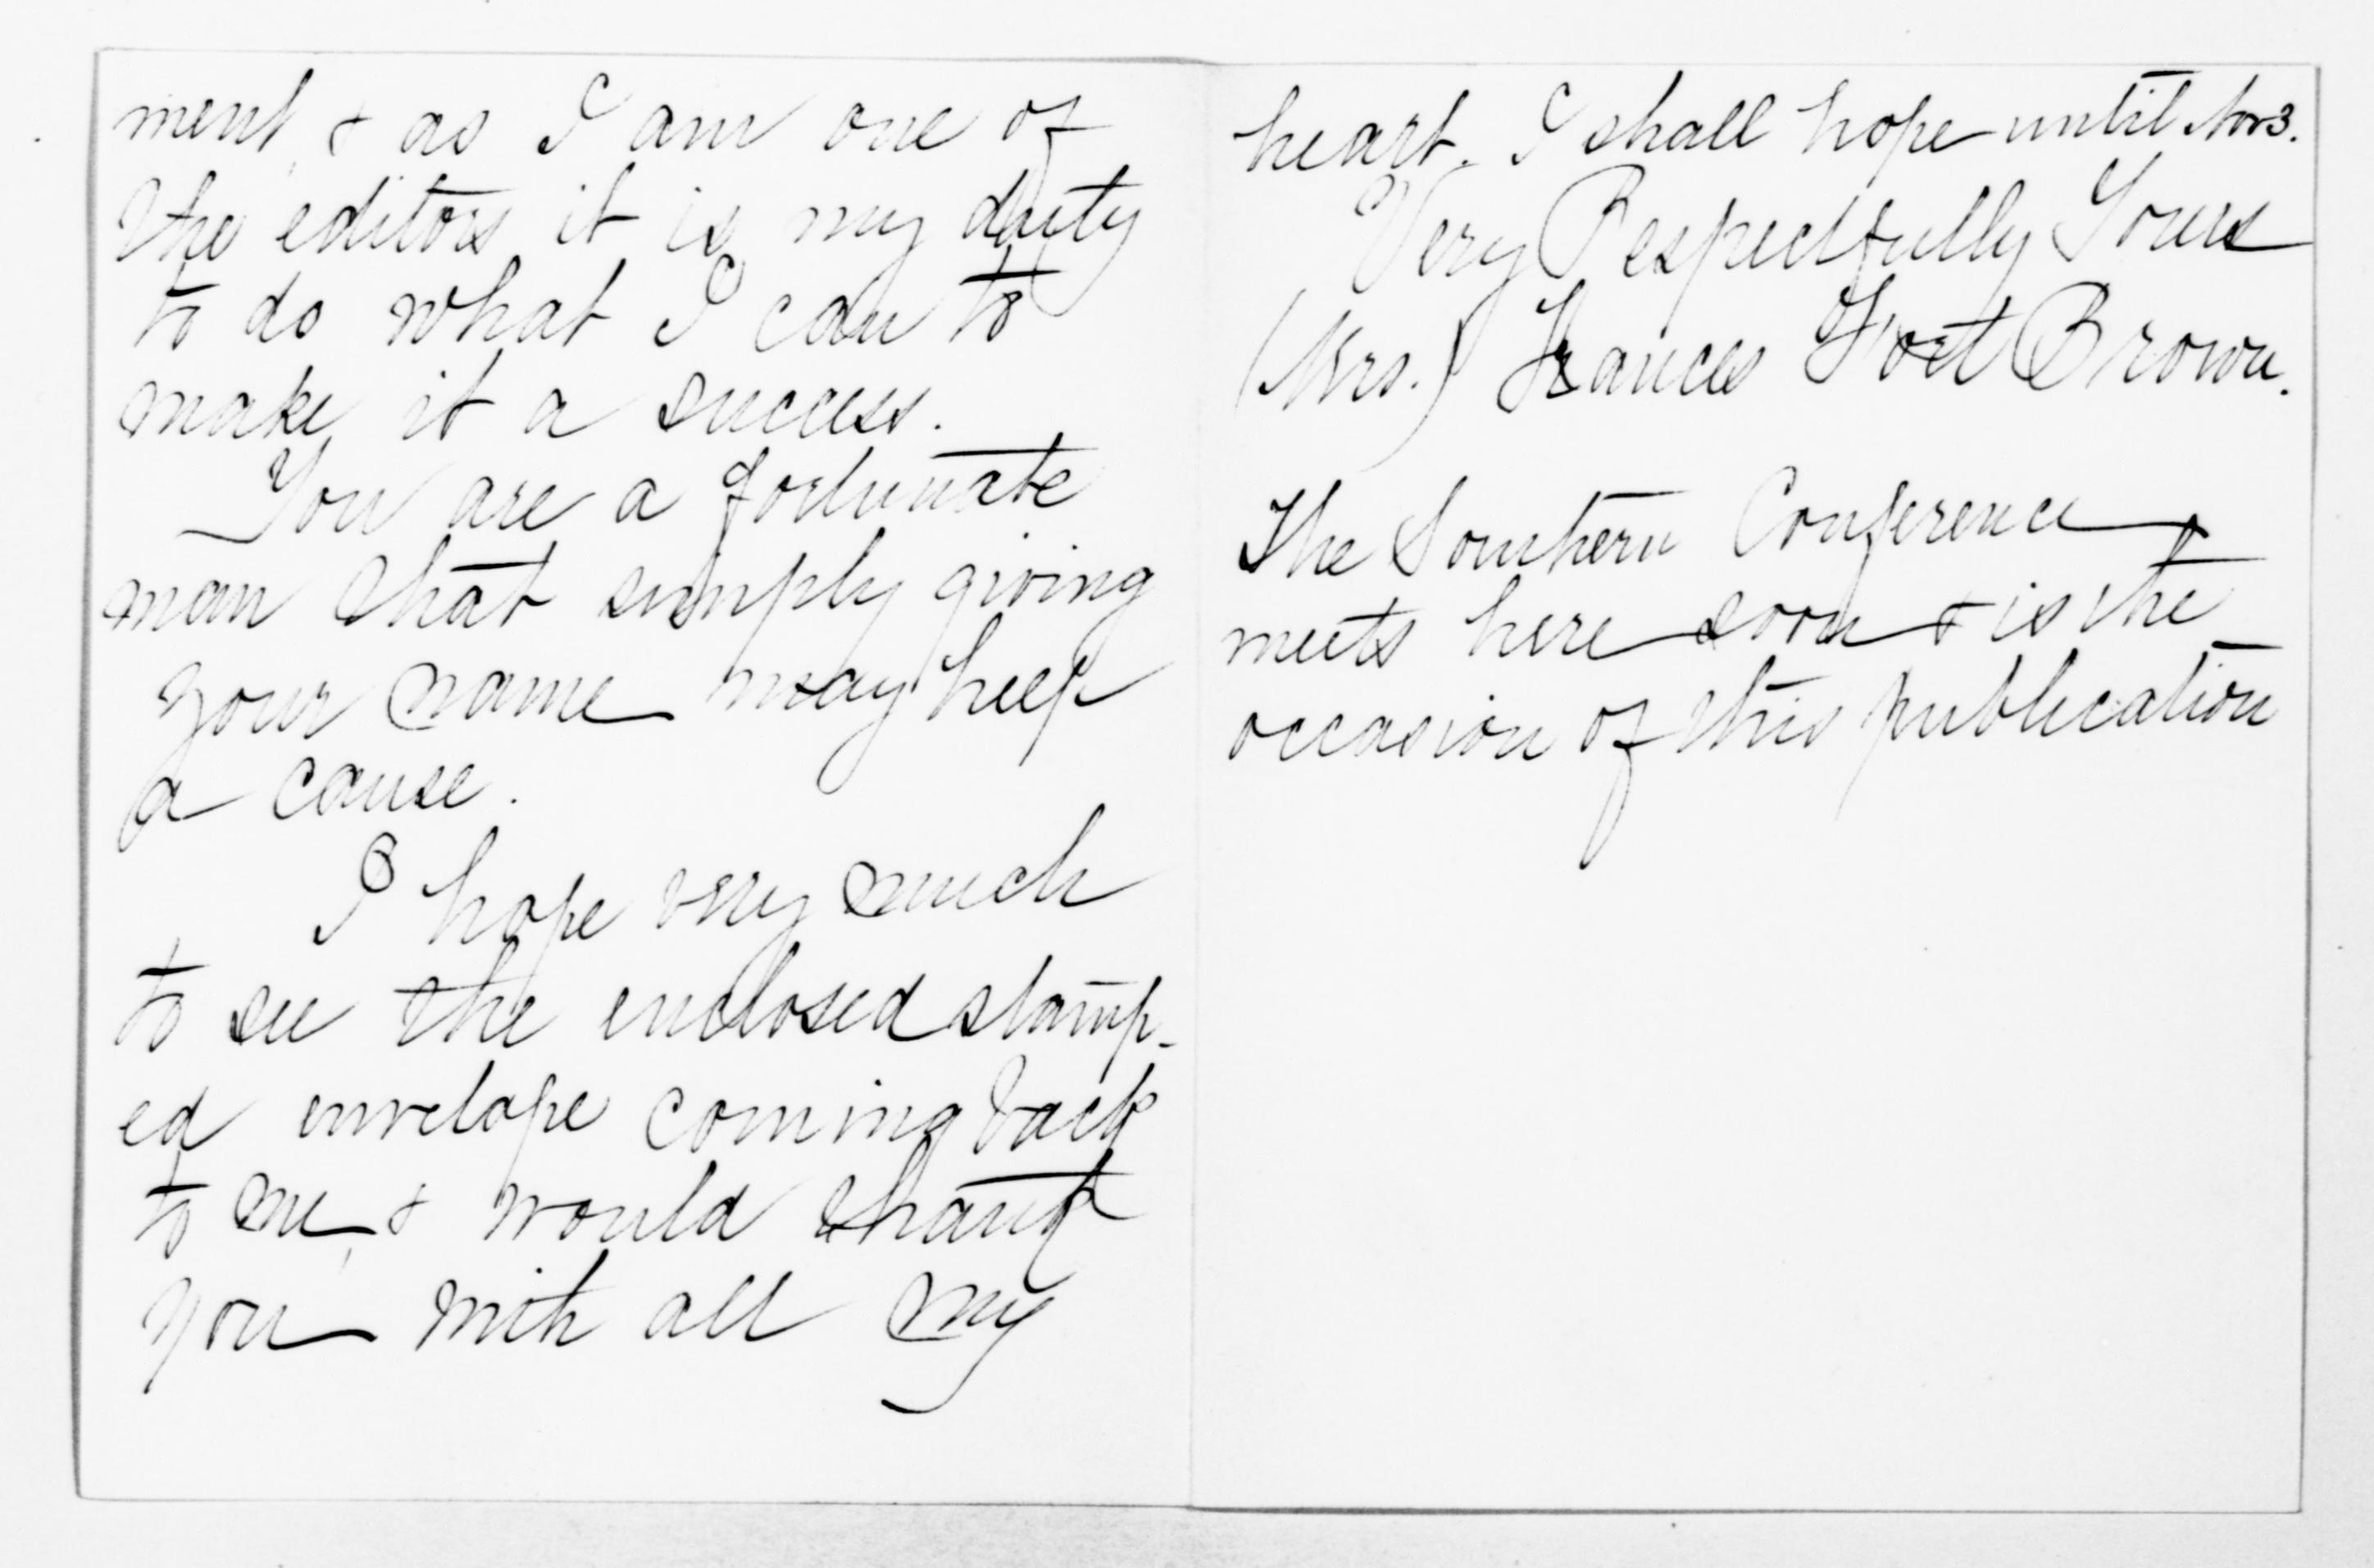 ment, & as I am one of
the editors it is my duty
to do what I can to
make it a success.
You are a fortunate
man that simply giving
your name may help
a cause.
I hope very much
to see the enclosed stamp-
ed envelope coming back
to me, & would thank
you with all my
heart. I shall hope until Nov 3.
Very Respectfully Yours
(Mrs.) Frances Fort Brown.
The Southern Conference
meets here soon & is the
occasion of this publication